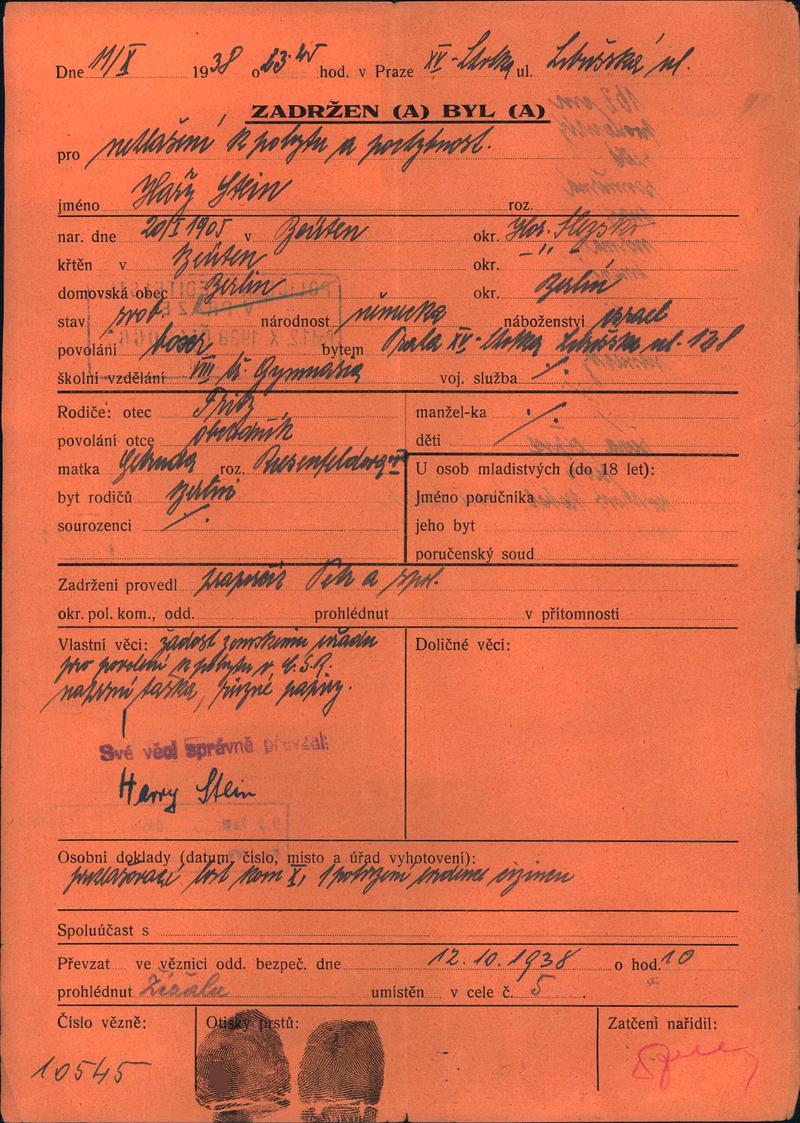 Dne 11/X 1938 o 23.45 hod. v Praze XV- ul. Libušská ul.
ZADRŽEN (A) BYL (A)
pro nehlášení k pobytu a pochybnost.
jméno Harry Stein roz.
nar. dne 20/I 1905 v Beuten okr. Hor. Slezsko
křtěn v Beuten okr. -"-
domovská obec Berlin okr. Berlin
stav svob. národnost německá náboženství israel
povolání bytem Praha XV- Libušská ul. 128
školní vzdělání VIII tř. Gymnasia voj. služba ·/.
Rodiče: otec Fritz manžel-ka ·/.
povolání otce obchodník děti
matka Getruda roz. U osob mladistvých (do 18 let):
byt rodičů Berlin Jméno poručníka
sourozenci ·/. jeho byt
poručenský soud
Zadržení provedl praporčík Petr a spol.
okr. pol. kom., odd. prohlédnut v přítomnosti
Vlastní věci: žádost zemskému úřadu Doličné věci:
pro povolení k pobytu v Č.S.R.
náprsní taška, různé papíry.
Své věci správně převzal:
Harry Stein
Osobní doklady (datum, číslo, místo a úřad vyhotovení):
list kom X, 1 potvrzení evidence cizinců
Spoluúčast s
Převzat ve věznici odd. bezpeč. dne 12.10.1938 o hod. 10
prohlédnut Žížala umístěn v cele č. 5.
Číslo vězně: Otisky prstů: Zatčení nařídil:
10545